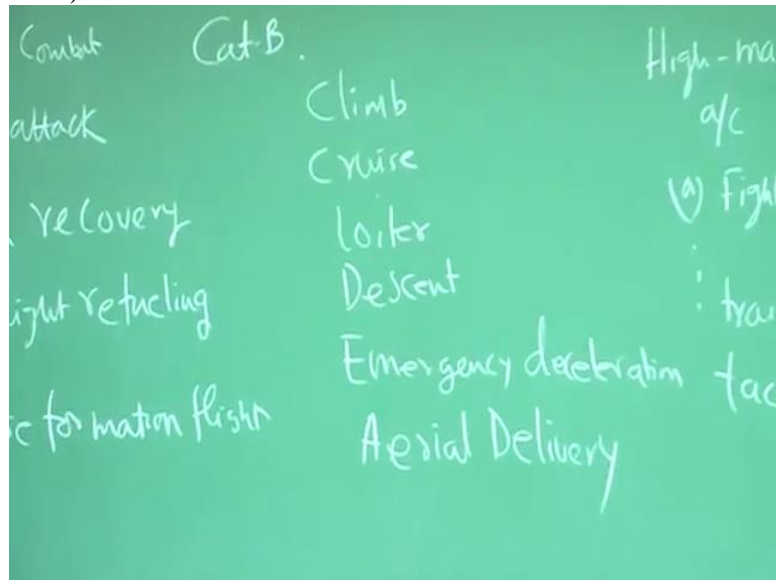 Combat
attack
recovery
ight refueling
ic formation flight
Cat-B.
Climb
Cruise
loiter
Descent
Emergency deceleration
Aerial Delivery
High-ma
a/c
(a) Figh
: trai
tac